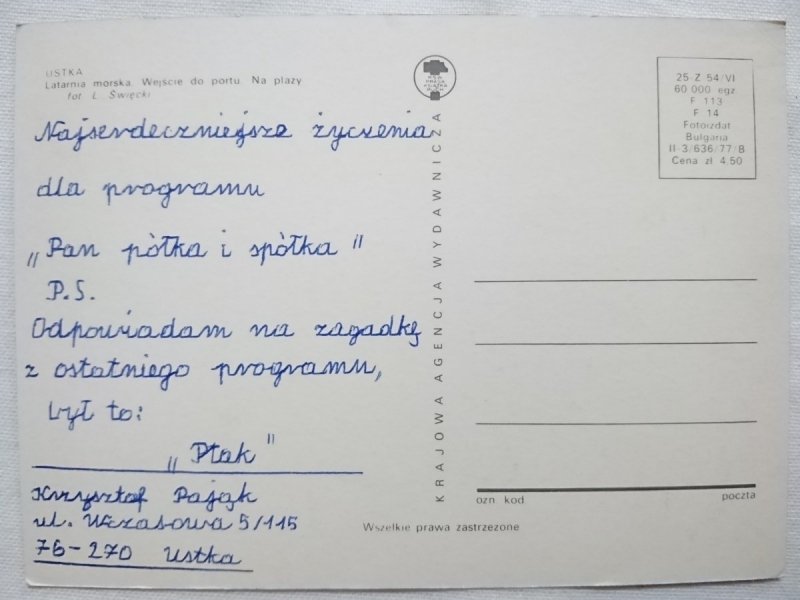 USTKA
Latarnia morska. Wejście do portu. Na plaży
fot. L. Święcki
Najserdeczniejsze życzenia
dla programu
„Pan półka i spółka"
P.S.
Odpowiadam na zagadkę
z ostatniego programu,
był to:
„Ptak"
Krzysztof Pająk
ul. Wczasowa 5/115
76-270 Ustka
KRAJOWA AGENCJA WYDAWNICZA
25 Z 54/VI
60 000 egz.
F 113
F 14
Fotoizdat
Bulgaria
II-3/636/77/B
Cena zł 4,50
ozn. kod
poczta
Wszelkie prawa zastrzeżone